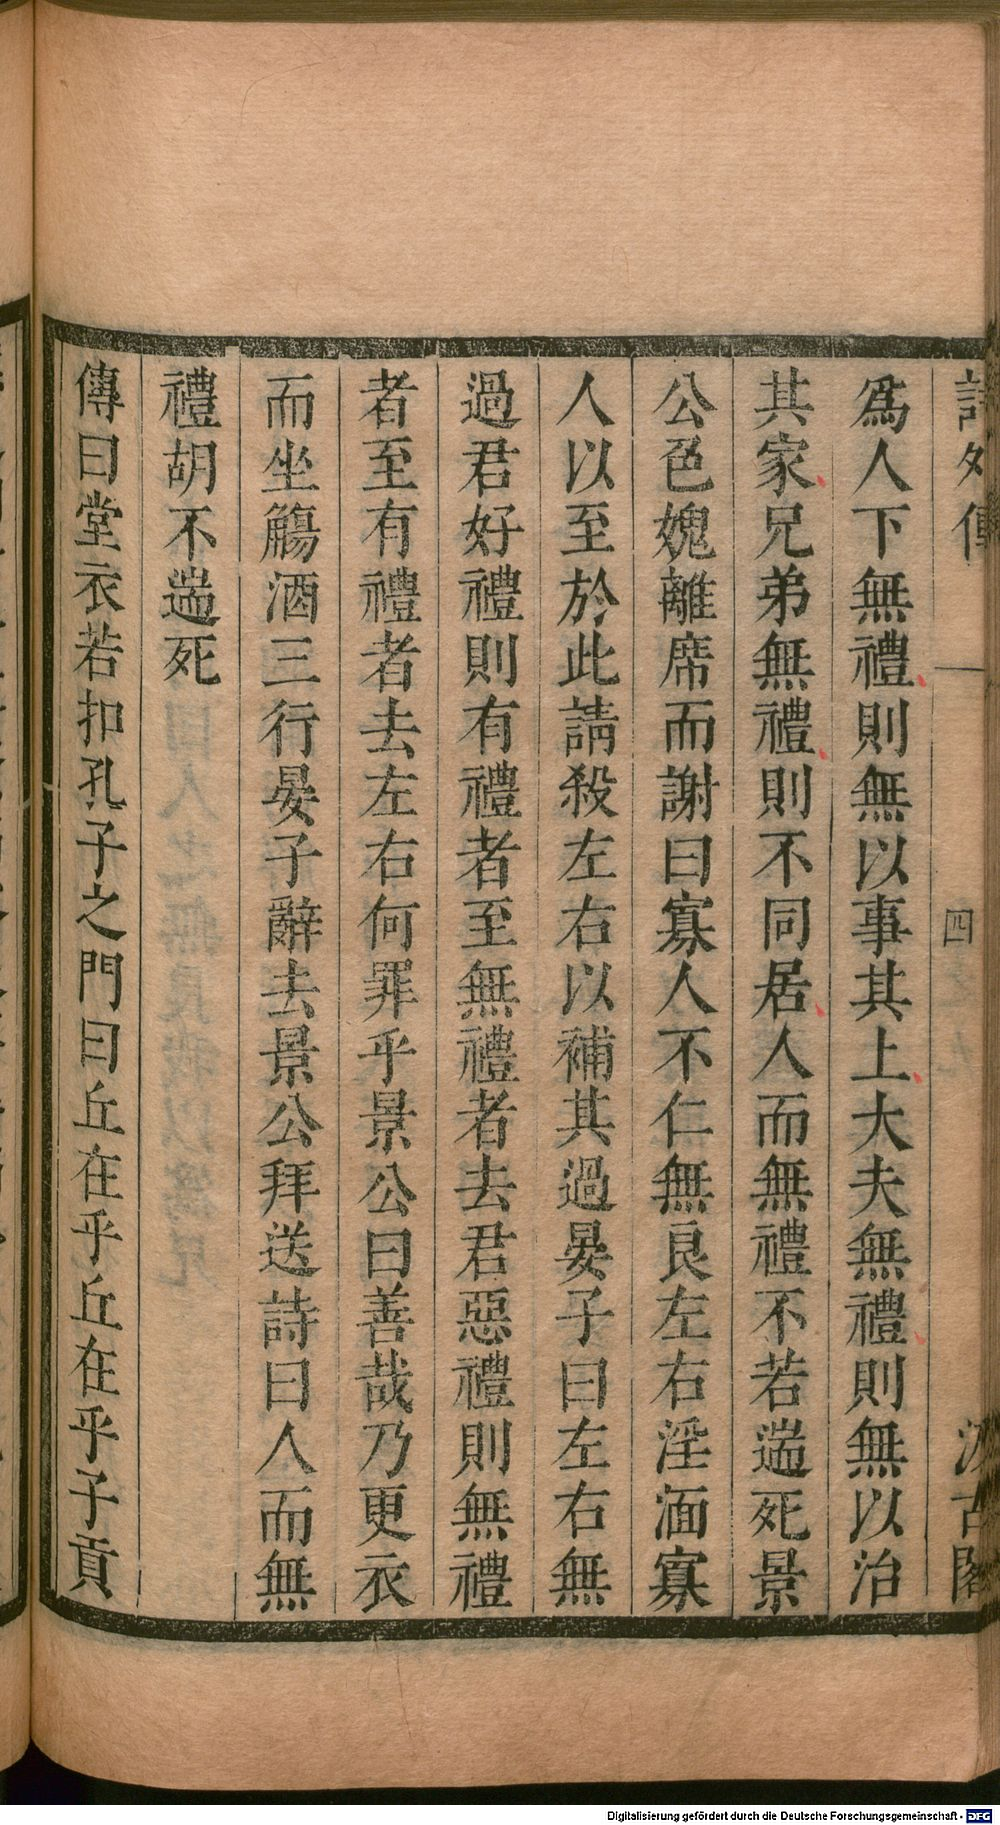 詩外傳 四 汲古閣
爲人下無禮則無以事其上大夫無禮則無以治
其家兄弟無禮則不同居人而無禮不若遄死景
公色媿離席而謝曰寡人不仁無良左右淫湎寡
人以至於此請殺左右以補其過晏子曰左右無
過君好禮則有禮者至無禮者去君惡禮則無禮
者至有禮者去左右何罪乎景公曰善哉乃更衣
而坐觴酒三行晏子辭去景公拜送詩曰人而無
禮胡不遄死
傳曰堂衣若扣孔子之門曰丘在乎丘在乎子貢
Digitalisierung gefördert durch die Deutsche Forschungsgemeinschaft - DFG